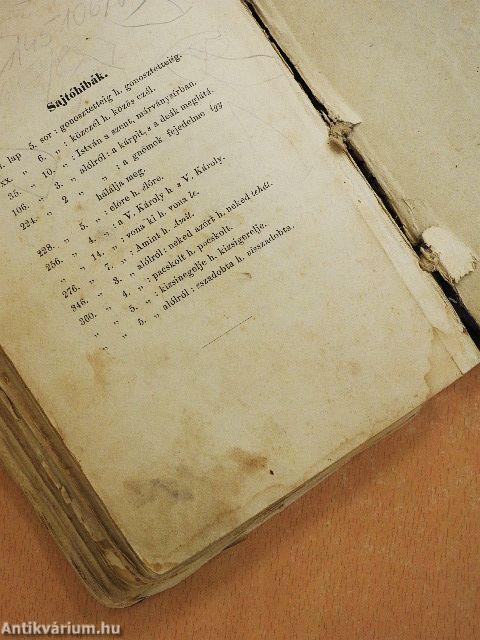 Sajtóhibák.
lap 5. sor : gonosztetteig h. gonosztetteiég.
xx. „ 6. „ : közezél h. közös czél.
35. „ 10. „ : István a szent, márványsírban.
106. „ 3. „ alólról : a kárpit, s a deák meplátá.
224. „ 2 „ „ : a gnómok fejedelme így
hálálja meg.
228. „ 5. „ : elöre h. előre.
256. „ 4. „ : a V. Károly h. a V. Károly.
„ „ 14. „ : vona ki h. vona le.
276. „ 7. „ : Amint h.
346. „ 3. „ alólról : neked azúrt h. neked tehát.
360. „ 4. „ : pacskolt h. pacskolt.
„ „ 5. „ : kizsinegelje h. kizsigerelje.
„ „ 5. „ alólról : eszadobta h. visszadobta.
Antikvárium.hu